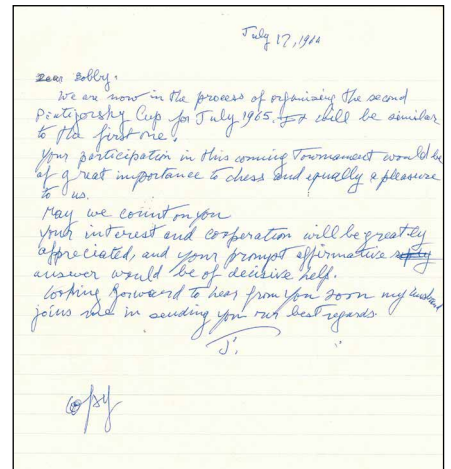 July 17, 1964
Dear Bobby.
We are now in the process of organising the second
Piatigorsky Cup for July 1965. It will be similar
to the first one.
Your participation in this coming Tournament would be
of great importance to chess and equally a pleasure
to us.
May we count on you
Your interest and cooperation will be greatly
appreciated, and your prompt affirmative reply
answer would be of decisive help.
Looking forward to hear from you soon my husband
joins me in sending you our best regards.
J.
Copy